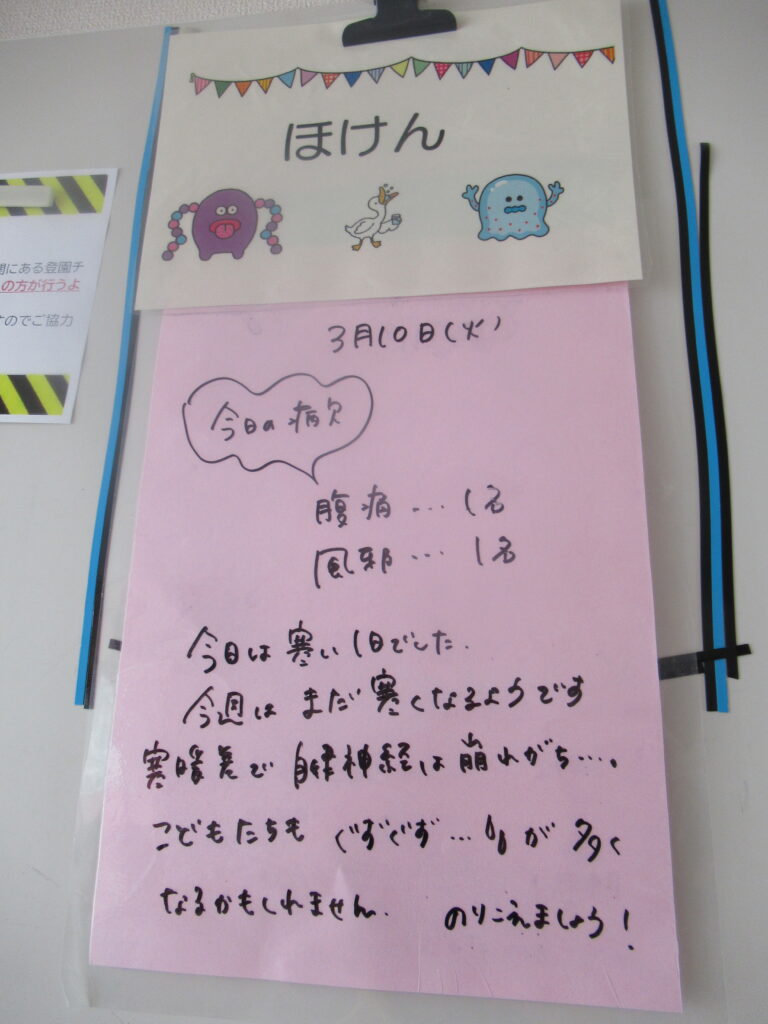 ほけん
間にある登園チ
の方が行うよ
すのでご協力
3月10日(火)
今日の病欠
腹痛…1名
風邪…1名
今日は寒い1日でした.
今週は まだ寒くなるようです
寒暖差で 自律神経は崩れがち….
こどもたちも ぐずぐず…が 多く
なるかもしれません. のりこえましょう!